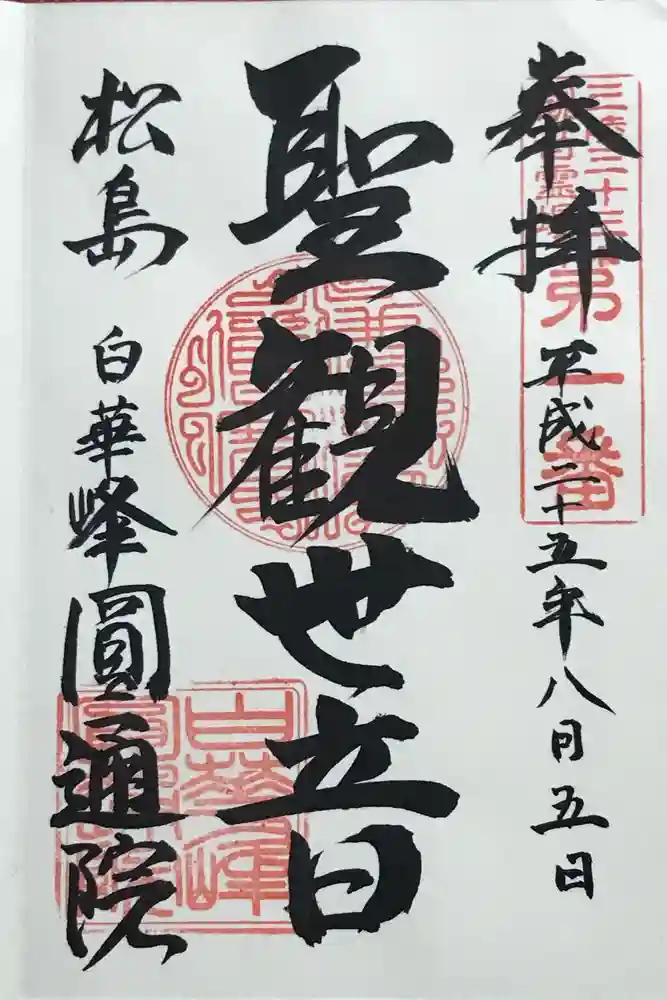 奉拝
三陸三十三
霊場
第一番
平成二十五年八月五日
聖観世音
松島 白華峰圓通院
白華峰